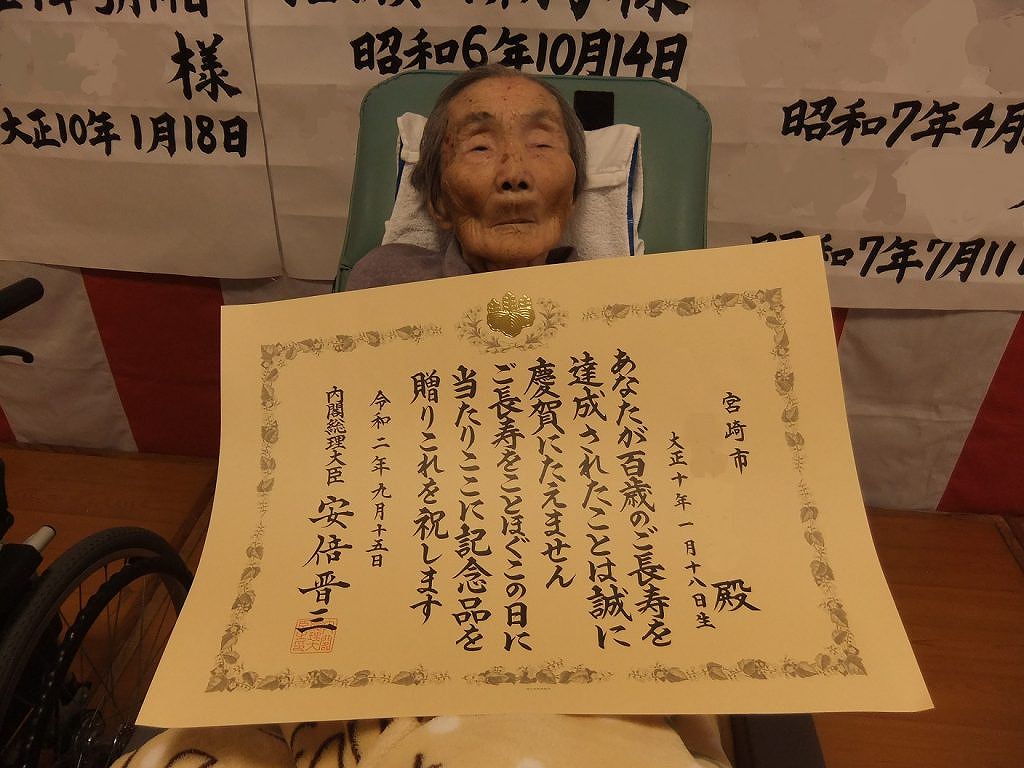 様
昭和6年10月14日
大正10年1月18日
昭和7年4月
昭和7年7月11
宮崎市
殿
大正十年一月十八日生
あなたが百歳のご長寿を
達成されたことは誠に
慶賀にたえません
ご長寿をことほぐこの日に
当たりここに記念品を
贈りこれを祝します
令和二年九月十五日
内閣総理大臣 安倍晋三